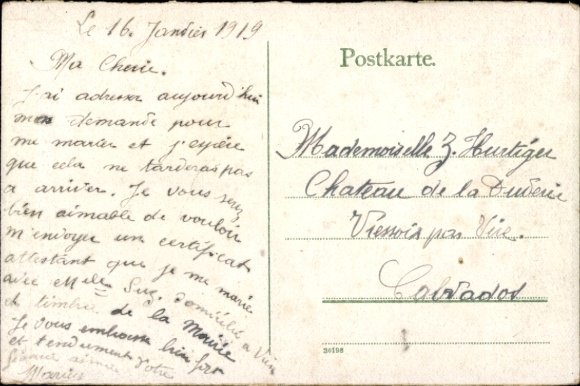 Le 16 Janvier 1919
Ma Cherie.
J'ai adresser aujourd'hui
ma demande pour
me marier et j'espère
que cela ne tarderas pas
a arriver. Je vous serez
bien aimable de vouloir
m'envoyer un certificat
attestant que je me marie
avec Melle domiciliée a Vire
et timbre de la Mairie
Je vous embrasse bien fort
et tendrement Votre
fiancé
Postkarte.
Mademoiselle Z. Hurtiger
Chateau de la
par Vire.
Calvados
26198